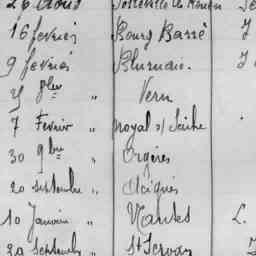 26 Août Sotteville les Rouen
16 février Bourg Barré
9 février
25 9bre " Vern
7 Février " Noyal s/ Seiche
30 9bre " Orgères
20 septembre " Acigné
10 Janvier " Nantes L.
29 Septembre St Servan